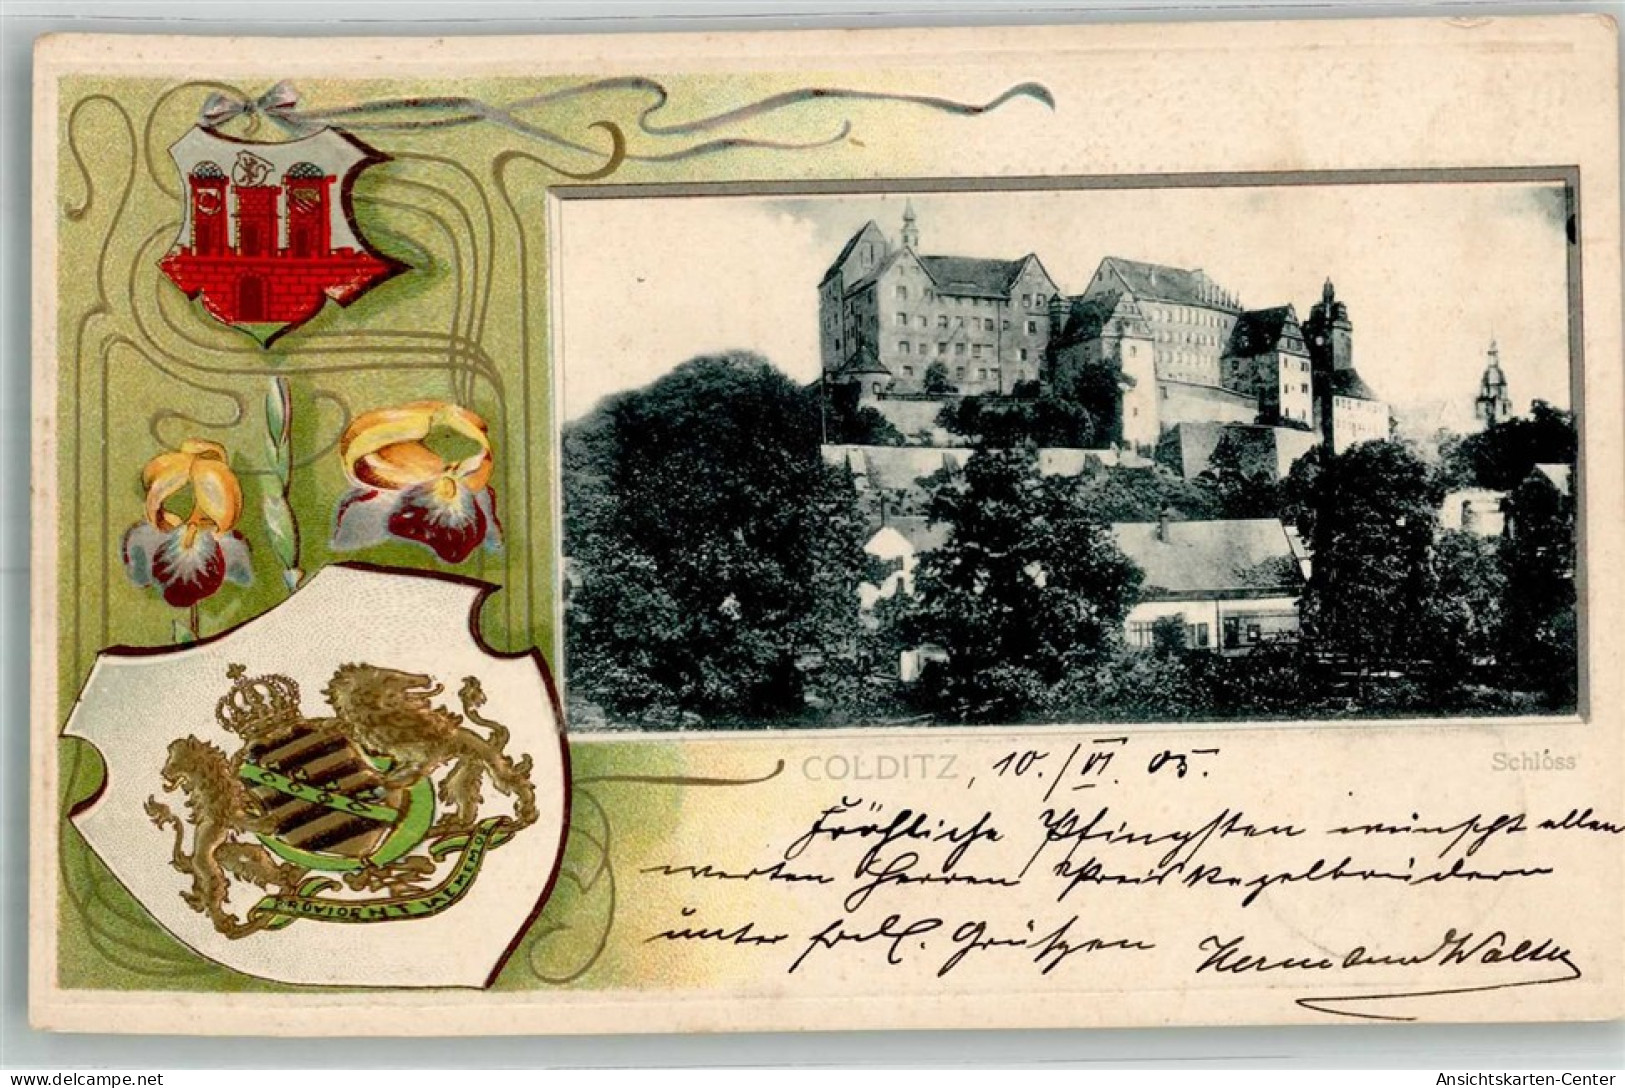 COLDITZ , 10./VI. 05.
Schloss
Fröhliche Pfingsten wünscht allen
werten Herren Preis Kegelbrüdern
unter frdl. Grüßen Hermann Walter
PROVIDENTIAE MEMOR
Ansichtskarten-Center